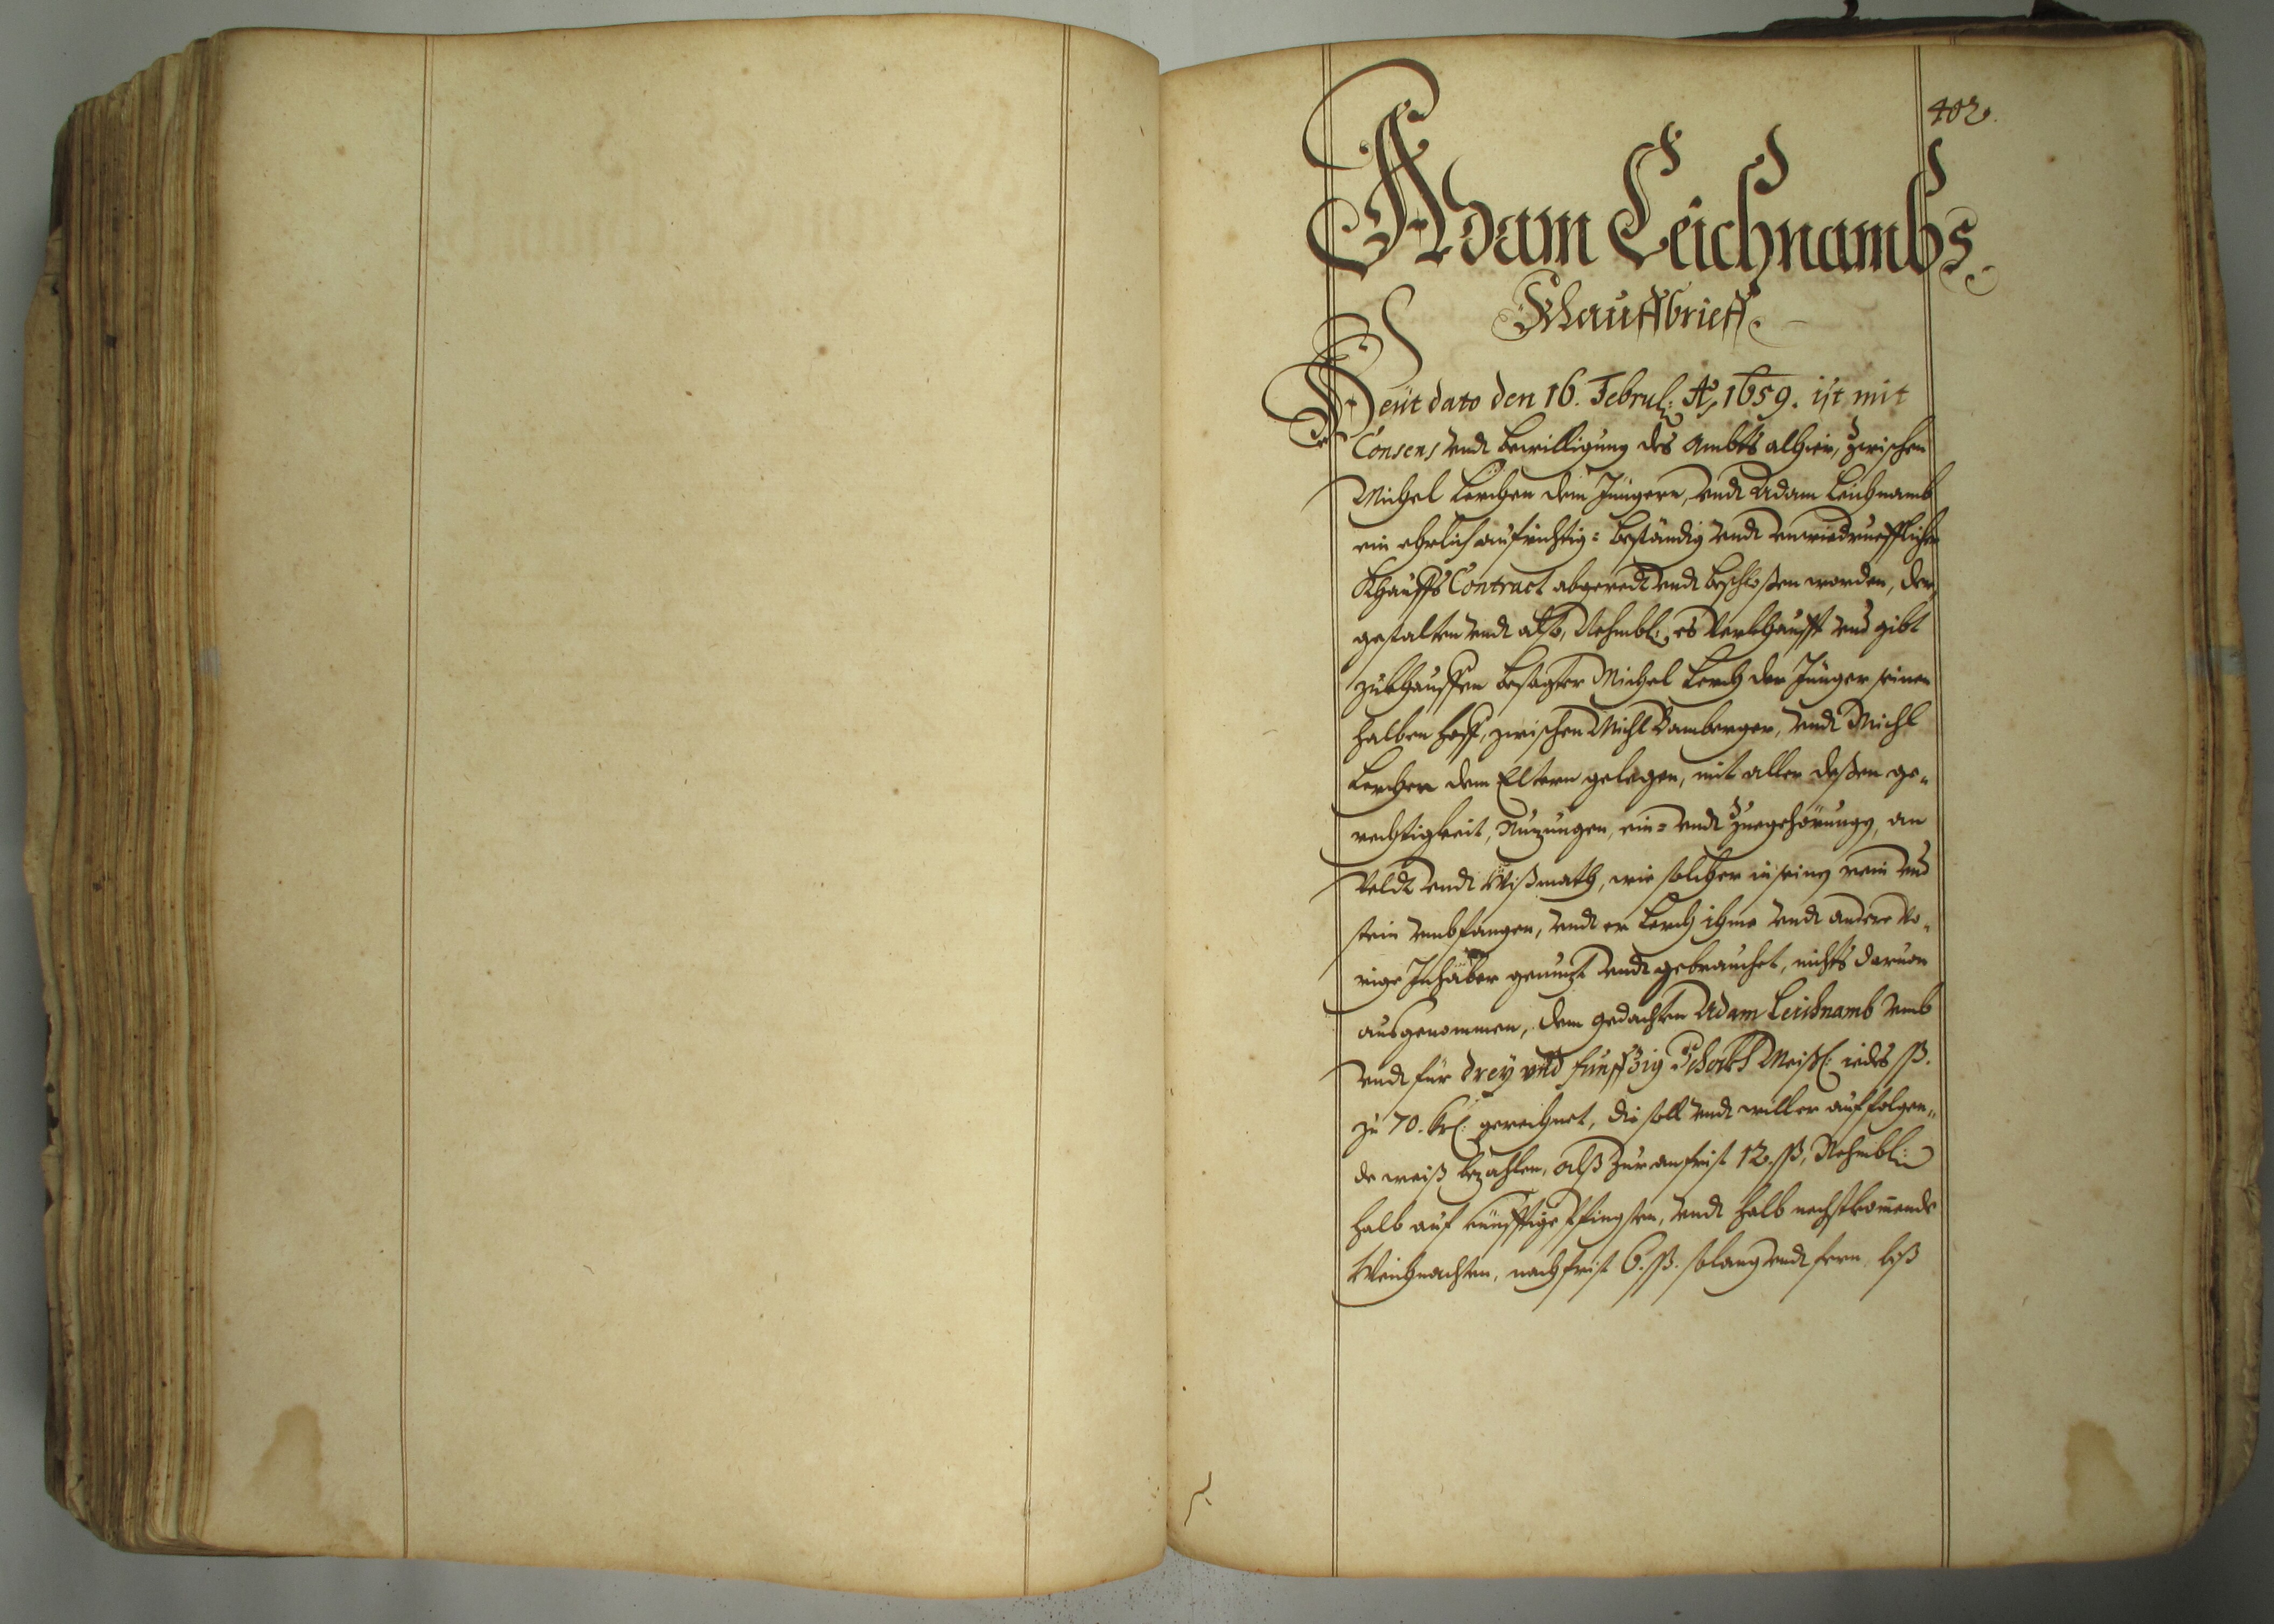 402.
Adam Leichnambs
Khauffbrieff.
Heüt dato den 16. Februl: Aõ 1659. ist mit
Consens vndt bewilligung des Ambts alhier, zwischen
Michel Lerchen dem Jüngern, vndt Adam Leichnamb
ein ehrlich aufrichtig= beständig vndt vnwiedruefflicher
Khauffs Contract abgeredt vndt beschloßen worden, der,
gestalten vndt also, Nehmbl: es Verkhaufft vnd gibt
zukhauffen besagter Michel Lerch der Jünger seinen
halben hoff, zwischen Michl Bamberger, vndt Michl
Lerchen dem Eltern gelegen, mit aller deßen ge„
rechtigkeit, Nuzungen, ein= vndt Zuegehörung, an
Veldt vndt Wißmath, wie solcher in seing rein vnd
stein vmbfangen, vndt er Lerch ihme vndt andere Vo„
rige Inhaber genuzt vndt gebrauchet, nichts daruon
ausgenommen, dem gedachten Adam Leichnamb vmb
vndt für drey vnd funffzig Schockh Meißl: iedes ſß.
zu 70. krl: gerechnet, die soll vndt will er auf folgen„
de weiß bezahlen, alß zur anfrist 12. ſß, Nehmbl:
halb auf künfftige Pfingsten, vndt halb nechstkom̄ende
Weihnachten, nachfrist 6. ſß. solang vndt fern, biß